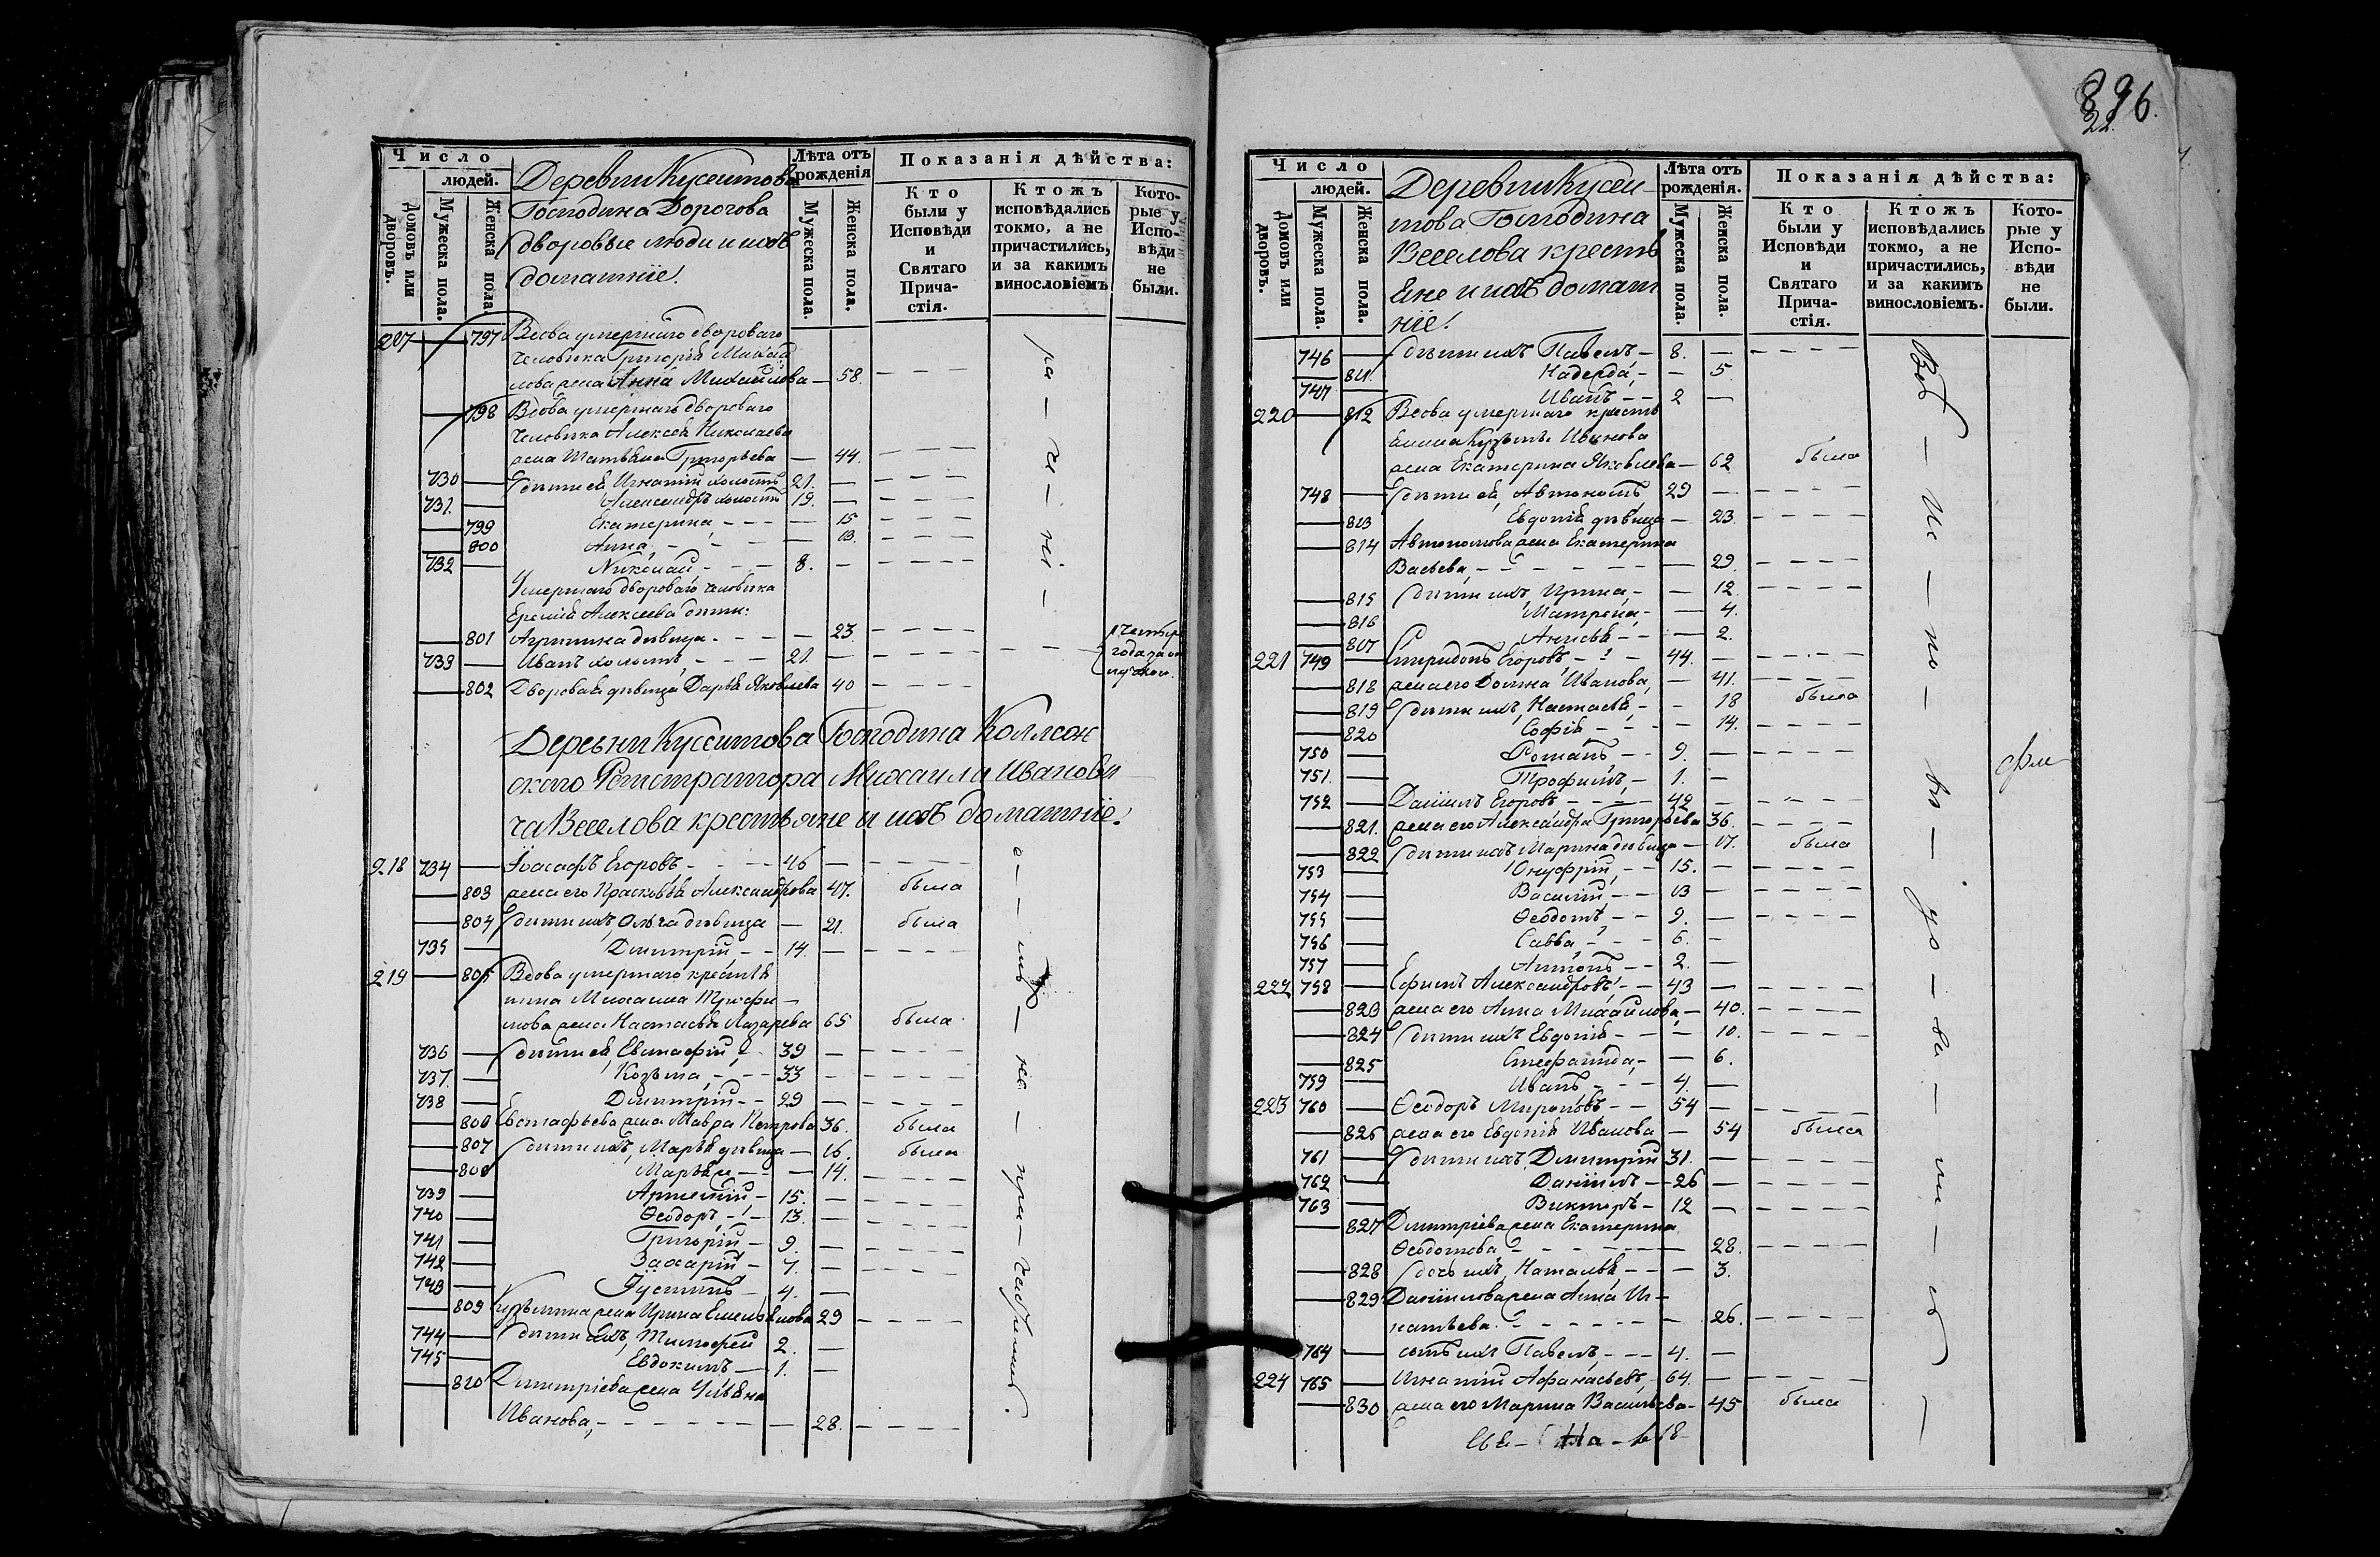 Число
людей.
Домовъ или дворовъ.
Мужеска пола.
Женска пола.
Деревни Кусеитова
Господина Дорогова
дворовые люди и ихъ
домашнїе.
Лѣта отъ рожденія
Мужеска пола.
Женска пола.
Показанія дѣйства:
Кто были у Исповѣди и Святаго Прича-стія.
Ктожъ исповѣдались токмо, а не причастились, и за какимъ винословіемъ
Кото-рые у Испо-вѣди не были.
217 — 797 Вдова умершаго двороваго
человѣка Григорія
жена Анна Михайлова — 58. — — —
— 798 Вдова умершаго двороваго
человѣка Алексѣя Николаева
жена Григорьева — 44. — — —
730 — дѣти ея Игнатій холостъ 21. — — — —
731. — Александръ холостъ 19. — — — —
— 799 Екатерина, — — — — 15 — — —
— 800 Анна, — — — — 13. — — —
732 — Николай — — — 8. — — — — —
Умершаго двороваго человѣка
Алексѣева дѣти:
— 801 Агрипина дѣвица. — — — 23. — — — —
733 — Иванъ холостъ, — — — 21. — — — —
— 802 Дворовая дѣвица Дарья Яковлева 40 — — — —
Деревни Кусеитова Господина Коллеж
скаго Регистратора Михаила Иванови
ча Веселова крестьяне и ихъ домашнїе.
218 734 — Іоасафъ Егоровъ — — — 46 — — — — —
— 803 жена его Прасковья Александрова 47. была
— 804 дѣти ихъ, Ольга дѣвица — 21. была
735 — Димитрій, — — 14. — — — — —
219 — 805 Вдова умершаго крестья
нина Михаила Трофи—
мова жена Настасья Лазарева 65 была
736 — дѣти ея, Евстафій, — 39 — — — — —
737. — Козьма, — — — 33 — — — — —
738 — Димитрій — — 29 — — — — —
— 806 Евстафьева жена Мавра Петрова 36. была
— 807 дѣти ихъ, Марья дѣвица — 16. была
— 808 Марья — — — 14. — — — —
739 — Артемій — 15. — — — — —
740 — Ѳеодоръ — — 13. — — — — —
741 — Григорій — 9. — — — — —
742 — Захарій — 7. — — — — —
743 — Іустинъ — 4. —
— 809 Кузьмина жена Ирина Емельянова 29 — — — —
744 — дѣти ихъ, Тимофей 2. —
745 — Евдокимъ — 1. —
— 810 Димитріева жена Ульяна
Иванова, — — — — — — 28. — — — —
896.
22.
Число
людей.
Домовъ или дворовъ.
Мужеска пола.
Женска пола.
Деревни Кусеи—
това Господина
Веселова кресть
яне и ихъ домаш
нїе.
Лѣта отъ рожденія.
Мужеска пола.
Женска пола.
Показанія дѣйства:
Кто были у Исповѣди и Святаго Прича-стія.
Ктожъ исповѣдались токмо, а не причастились, и за какимъ винословіемъ.
Кото-рые у Испо-вѣди не были.
746 — дѣти ихъ Павелъ, — 8. — — — — —
— 811. Надежда, — — 5.
747 — Иванъ — — 2 —
220 — 812 Вдова умершаго кресть
янина Кузьмы Иванова
жена Екатерина Яковлева — 62 была
748 — дѣти ея, Автономъ, 29 — — — — —
— 813 Евдокія дѣвица — 23. — — — —
— 814 Автономова жена Екатерина
— — — — — — — 29. — — — —
— 815 дѣти ихъ, Ирина, — — 12. — — — —
— 816 Матрена, — — 4.
— 807 Анисья — — — 2.
221 749 — Спиридонъ Егоровъ — — 44. — — — — —
— 818 жена его Домна Иванова, — 41. — — — —
— 819 дѣти ихъ, Настасья, — — 18 была
— 820 Софія — — — 14. — — — —
750 — Романъ, — — 9. — — — — —
751. — Трофимъ, — 1. —
752 — Даніилъ Егоровъ — — — 42 — — — — —
— 821. жена его Александра Григорьева 36. — — — —
— 822 дѣти ихъ Марина дѣвица — 17. была
753 — Онуфрій, — — 15. — — — — —
754 — Василій — — 13 — — — — —
755 — Ѳеодотъ — — 9. — — — — —
756 — Савва, — — — 6. —
757 — Антонъ — — 2. —
222 758 — Ефимъ Александровъ — — 43 — — — — —
— 823 жена его Анна Михайлова, — 40. — — — —
— 824 дѣти ихъ Евдокія — — — 10. — — — —
— 825 Степанида, — — 6.
759 — Иванъ — — — 4. —
223 760 — Ѳеодоръ Мироновъ — — 54 — — — — —
— 826 жена его Евдокія Иванова — 54 была
761 — дѣти ихъ Димитрій 31. — — — — —
762 — Даніилъ — 26 — — — — —
763 — Викторъ — 12 — — — — —
— 827 Димитріева жена Екатерина
Ѳеодотова — — — — — — 28. — — — —
— 828 дочь ихъ Наталья — — — 3.
— 829 Даніилова жена Анна Иг—
натьева — — — — — — 26. — — — —
764 — сынъ ихъ Павелъ — — — 4. —
224 765 — Игнатій Афанасьевъ, — 64. — — — — —
— 830 жена его Марина Васильева — 45 была